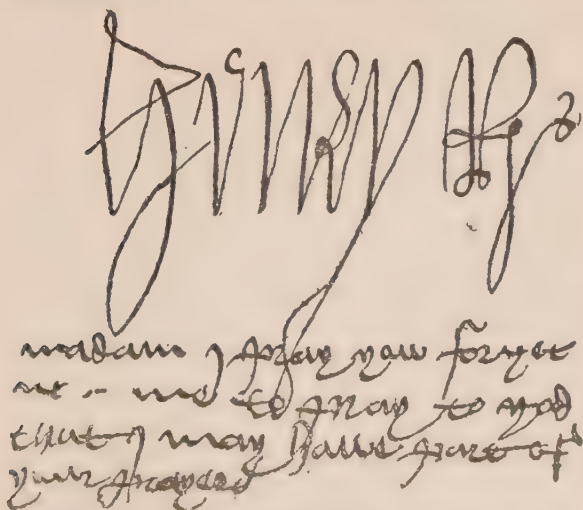 Henry R
madam I pray yow forget
me to pray to god
that I may have part of
your prayers